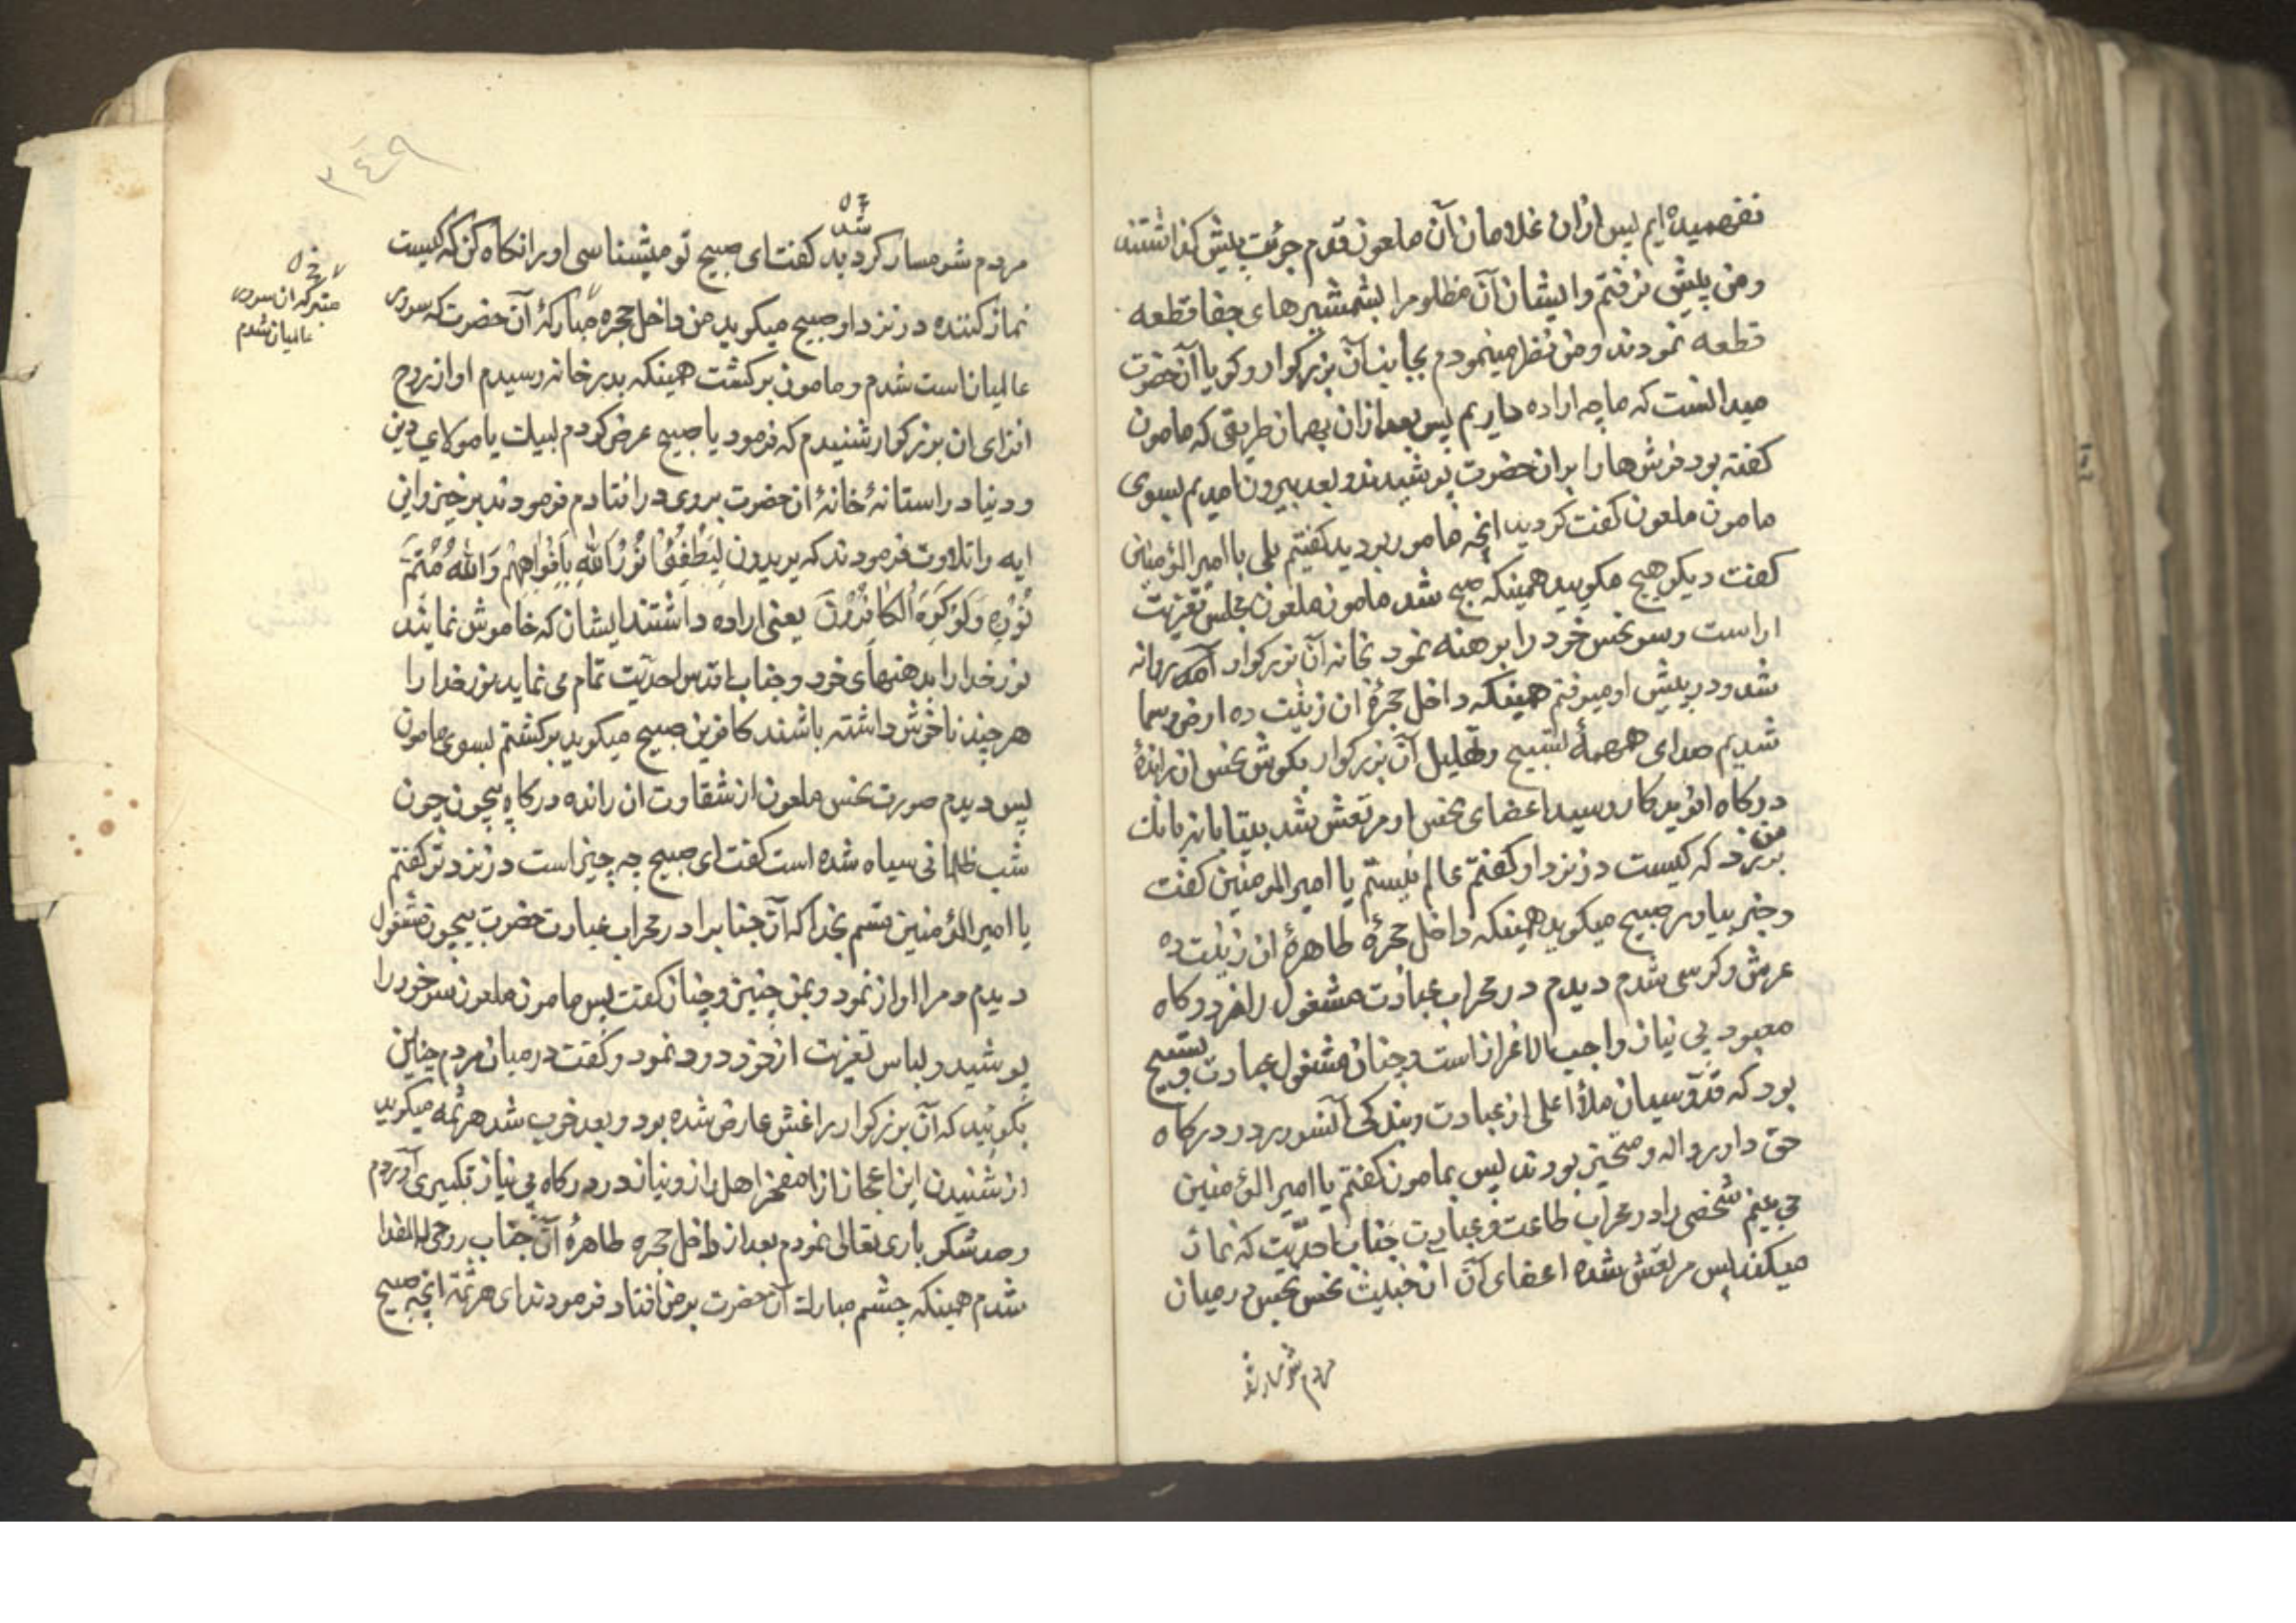 نفهمیده ایم پس ازان غلامان آن ملعون قدم جرئت پیش کذاشتند
ومن پیش نرفتم وایشان آن مظلومرا بشمشیرهای جفا قطعه
قطعه نمودند ومن نظر مینمودم بجانب آن بزرکوار وکویا آن حضرت
میدانست که ما چه اراده داریم پس بعد ازان بهمان طریقی که مامون
کفته بود فرش ها را بران حضرت پوشیدند و بعد بیرون امدیم بسوی
مامون ملعون کفت کردید انچه مامور بودید کفتیم بلی یا امیر المؤمنین
کفت دیکر هیچ مکویید همینکه صبح شد مامون ملعون مجلس تعزیت
اراست وسر نحس خود را برهنه نمود بخانه آن بزرکوار روانه
شد ودر پیش او میرفتم همینکه داخل حجرۀ ان زینت ده ارض وسما
شدیم صدای همهمۀ تسبیح وتهلیل آن بزرکوار بکوش نحس ان راندۀ
درکاه افریدکار رسید اعضای نحس او مرتعش شد بیتابانه بانك
بر من زد که کیست در نزد او کفتم عالم نیستم یا امیر المؤمنین کفت
وخبر بیاور صبیح میکوید همینکه داخل حجرۀ طاهرۀ ان زینت ده
عرش وکرسی شدم دیدم در محراب عبادت مشغول راز در درکاه
معبود بی نیاز واجب الاعزاز است وچنان مشغول عبادت و تسبیح
بود که قدوسیان ملأ اعلی از عبادت وبندکی آنسرور در درکاه
حق داور واله ومتحیر بودند پس بمامون کفتم یا امیر المؤمنین
می بینم شخصی را در محراب طاعت وعبادت جناب احدیت که نماز
میکند پس مرتعش شده اعضای آن خبیث نحس نجس در میان
مردم شرمسار شد
۳۴۹
خ ل
شد
مردم شرمسار کردید کفت ای صبیح تو میشناسی او را نکاه کن که کیست
نماز کننده در نزد او صبیح میکوید من داخل حجره مبارکۀ آن حضرت که سرور
خ ل
متبرکه ان سرور
عالمیان شدم
عالمیان است شدم ومامون برکشت همینکه بدر خانه رسیدم اواز روح
افزای ان بزرکوار شنیدم که فرمود یا صبیح عرض کردم لبیك یا مولای دین
ودنیا در استانۀ خانۀ ان حضرت بروی در افتادم فرمودند برخیز واین
ایه را تلاوت فرمودند که یریدون لِیُطْفِئُوا نُورَ اللّٰهِ بِاَفْواهِهِمْ وَاللّٰهُ مُتِمُّ
نُورِهِ وَلَوْ کَرِهَ الْکافِرُونَ یعنی اراده داشتند ایشان که خاموش نمایند
نور خدا را بدهنهای خود وجناب اقدس احدیت تمام می نماید نور خدا را
هر چند ناخوش داشته باشند کافرین صبیح میکوید برکشتم بسوی مامون
پس دیدم صورت نحس ملعون از شقاوت ان رانده درکاه بیچون چون
شب ظلمانی سیاه شده است کفت ای صبیح چه چیز است در نزد تو کفتم
یا امیر المؤمنین قسم بخدا که آن جنابرا در محراب عبادت حضرت بیچون مشغول
دیدم ومرا اواز نمود وبمن چنین وچنان کفت پس مامون ملعون سر خود را
پوشید ولباس تعزیت از خود دور نمود وکفت در میان مردم چنین
بکوئید که آن بزرکوار را غش عارض شده بود وبعد خوب شد هرثمه میکوید
از شنیدن این اعجاز از مفخر اهل راز ونیاز در درکاه بی نیاز تکبیری آوردم
وحمد شکر باری تعالی نمودم بعد از داخل حجره طاهرۀ آن جناب روحی له الفدا
شدم همینکه چشم مبارك آن حضرت بر من افتاد فرمودند ای هرثمه انچه صبیح